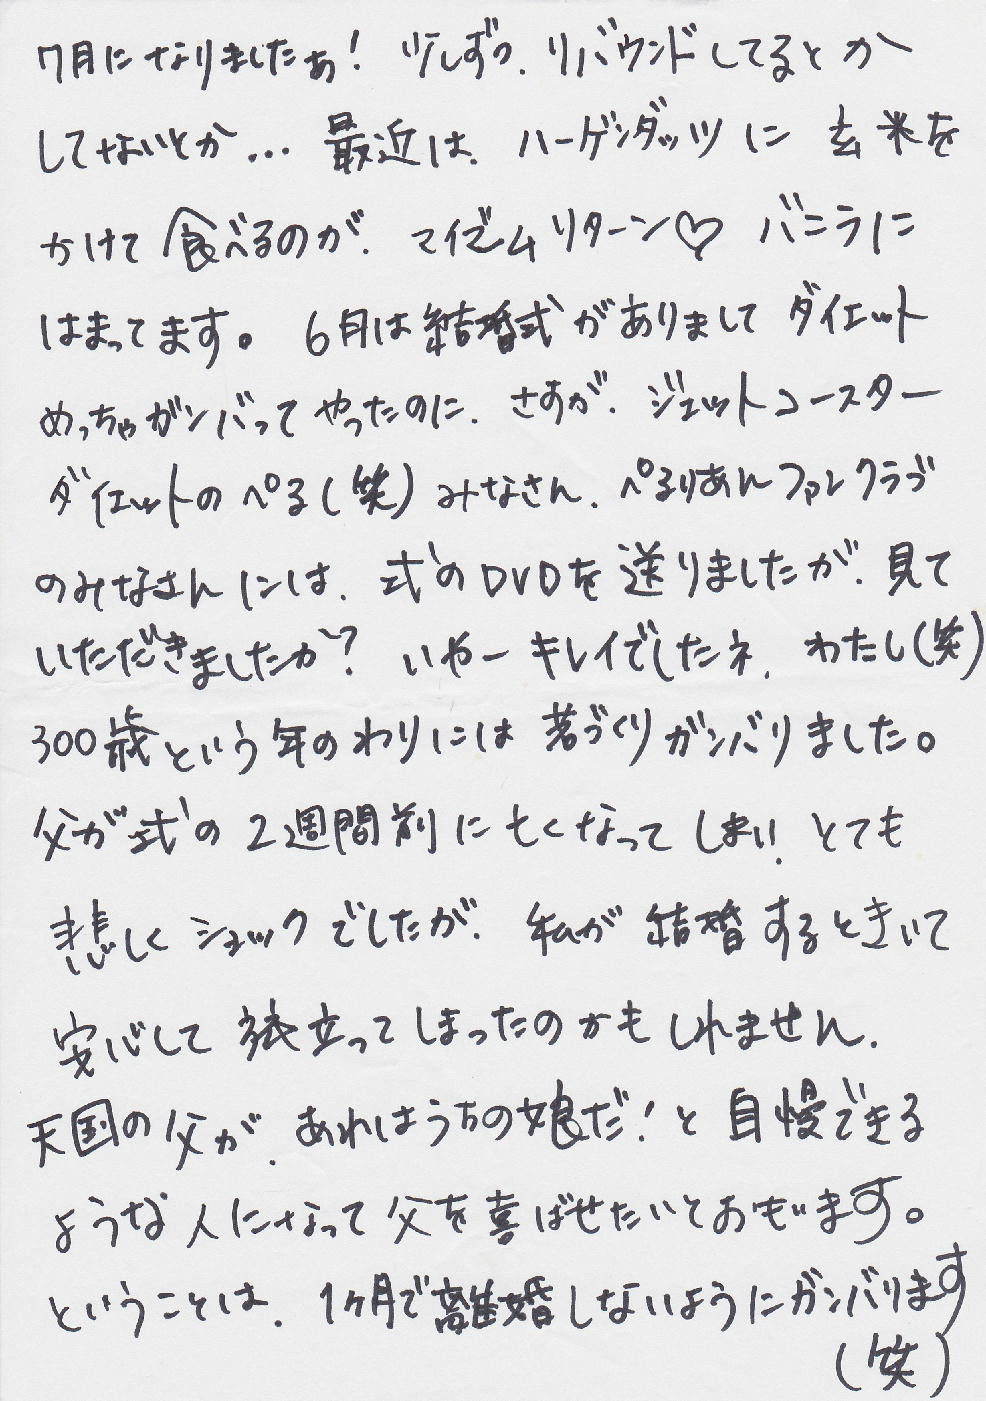 7月になりましたぁ！ 少しずつ、リバウンドしてるとか
してないとか… 最近は、ハーゲンダッツに 玄米を
かけて食べるのが、マイブームリターン♡ バニラに
はまってます。 6月は結婚式がありまして ダイエット
めっちゃガンバってやったのに、さすが、ジェットコースター
ダイエットのぺる(笑) みなさん、ぺるりあんファンクラブ
のみなさんには、式のDVDを送りましたが、見て
いただきましたか？ いやー キレイでしたネ、わたし(笑)
300歳という年のわりには 若づくりガンバりました。
父が式の2週間前に亡くなってしまい、とても
悲しくショックでしたが、私が結婚するときいて
安心して旅立ってしまったのかもしれません、
天国の父が、あれはうちの娘だ！と自慢できる
ような人になって父を喜ばせたいとおもいます。
ということは、1ヶ月で離婚しないようにガンバります
(笑)